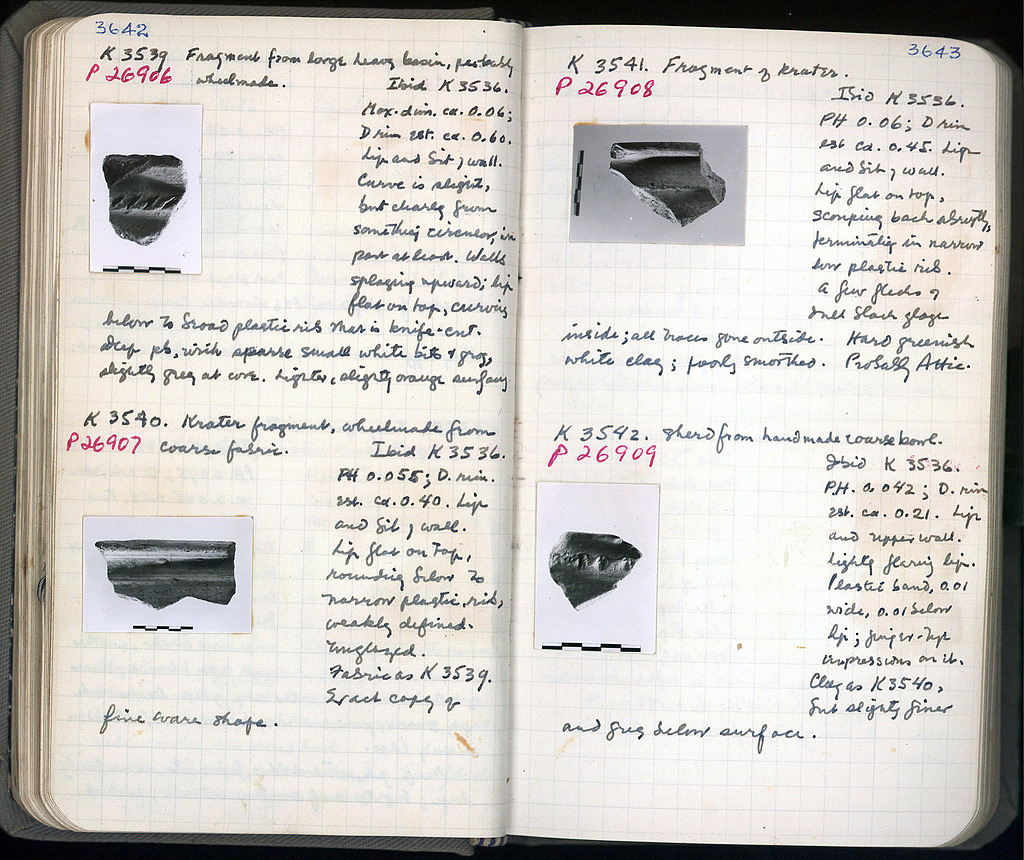 3642
K 3539 Fragment from large heavy basin, probably
P 26906 wheelmade. Ibid K 3536.
Max. dim. ca. 0.06;
D rim est. ca. 0.60.
Lip and bit of wall.
Curve is slight,
but clearly from
something circular, in
part at least. Walls
splaying upward; lip
flat on top, curving
below to broad plastic rib that is knife-cut.
deep pb, with sparse small white bits & grog,
slightly grey at core. Lighter, slightly orange surface
K 3540. Krater fragment, wheelmade from
P 26907 coarse fabric. Ibid K 3536.
PH 0.055; D. rim.
est. ca. 0.40. Lip
and bit of wall.
Lip flat on top,
rounding below to
narrow plastic rib,
weakly defined.
Unglazed.
Fabric as K 3539.
Exact copy of
fine ware shape.
3643
K 3541. Fragment of krater.
P 26908 Ibid K 3536.
PH 0.06; D rim
est ca. 0.45. Lip
and bit of wall.
Lip flat on top,
scooping back abruptly,
terminating in narrow
low plastic rib.
A few flecks of
dull black glaze
inside; all traces gone outside. Hard greenish
white clay; poorly smoothed. Probably Attic.
K 3542. Sherd from handmade coarse bowl.
P 26909 Ibid K 3536.
PH. 0.042; D. rim
est. ca. 0.21. Lip
and upper wall.
Lightly flaring lip.
Plastic band, 0.01
wide, 0.01 below
lip; finger-tip
impressions on it.
Clay as K3540,
but slightly finer
and grey below surface.